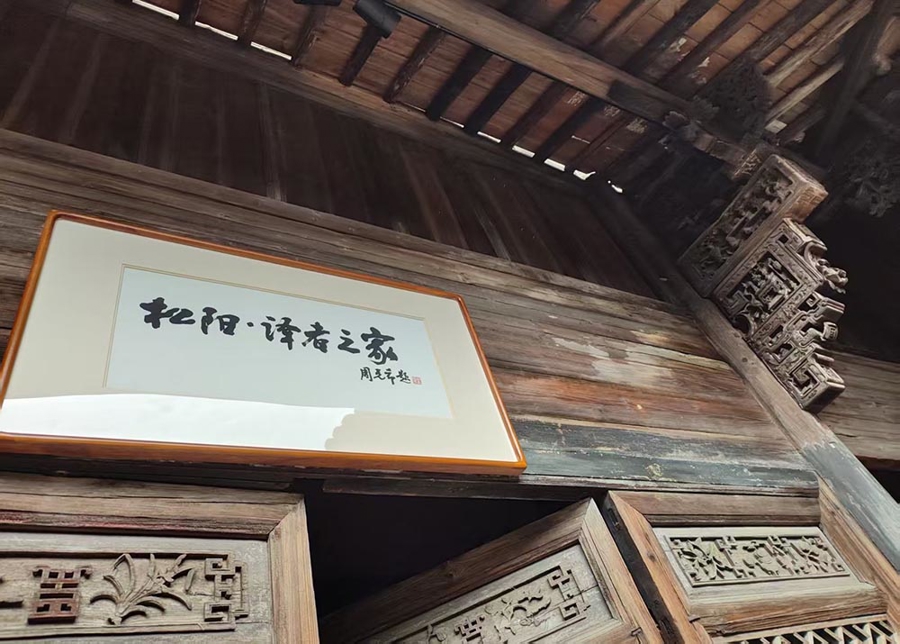 松阳·译者之家
周克希题